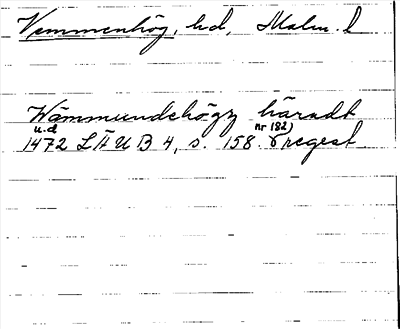 Vemmenhög, hd, Malm. l
Wämmundehögz häradt
u.d nr 182)
1472 LÄUB 4, s. 158. regest